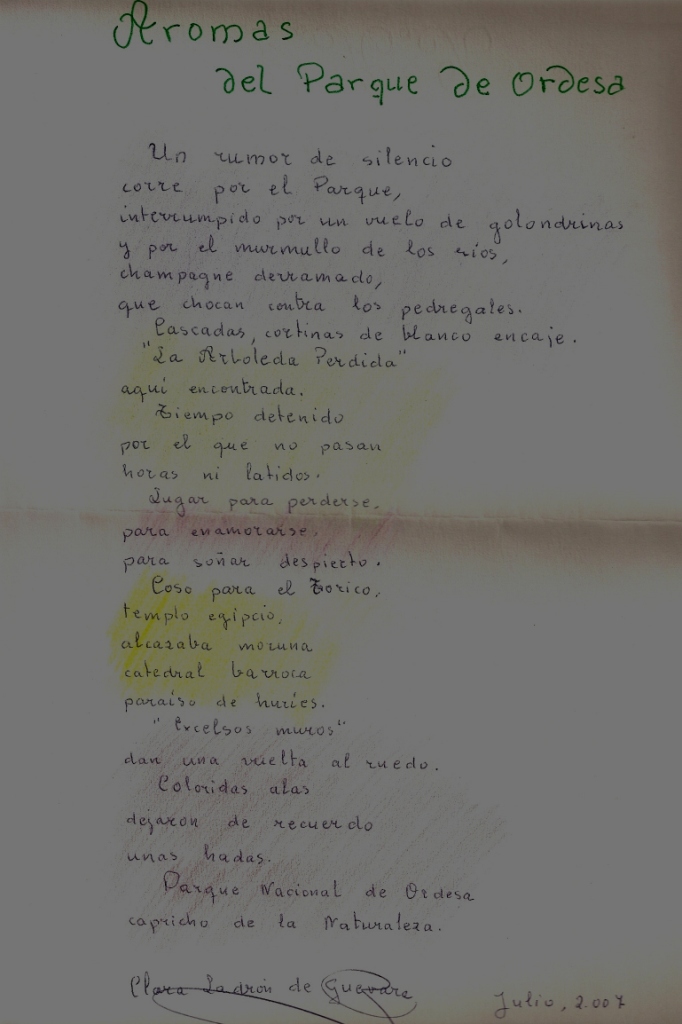 Aromas
del Parque de Ordesa
Un rumor de silencio
corre por el Parque,
interrumpido por un vuelo de golondrinas
y por el murmullo de los ríos,
champagne derramado,
que chocan contra los pedregales.
Cascadas, cortinas de blanco encaje.
"La Arboleda Perdida"
aquí encontrada.
Tiempo detenido
por el que no pasan
horas ni latidos.
Lugar para perderse,
para enamorarse,
para soñar despierto.
Coso para el Torico,
templo egipcio,
alcazaba moruna
catedral barroca
paraíso de huríes.
"Excelsos muros"
dan una vuelta al ruedo.
Coloridas alas
dejaron de recuerdo
unas hadas.
Parque Nacional de Ordesa
capricho de la Naturaleza.
Clara Ladrón de Guevara
Julio, 2.007